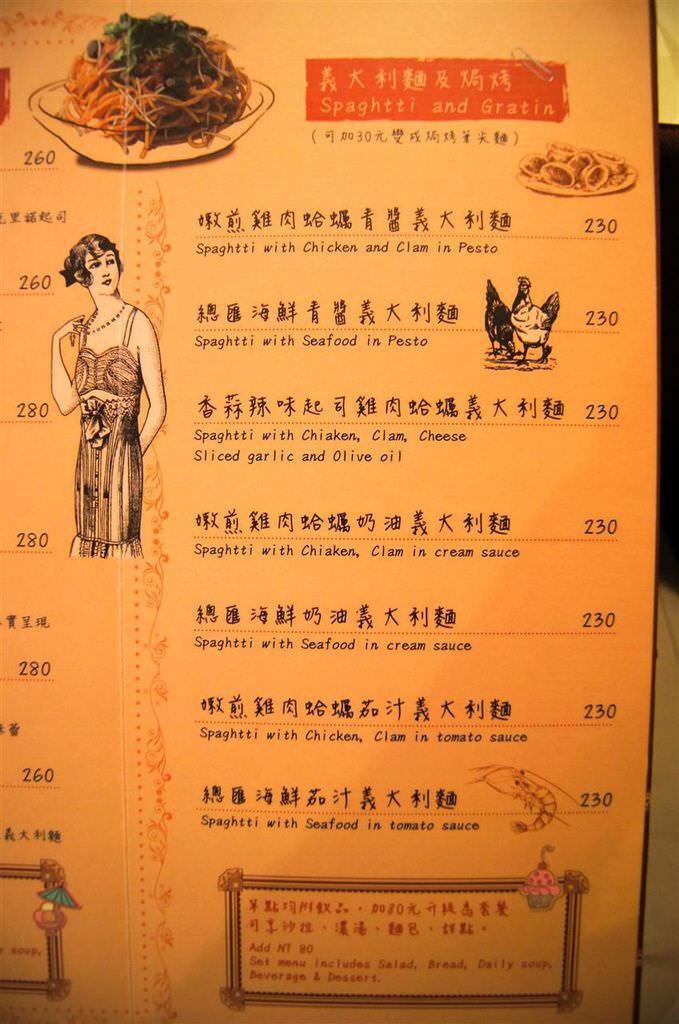 260
里諾起司
260
280
280
實呈現
280
260
義大利麵
soup,
義大利麵及焗烤
Spaghtti and Gratin
(可加30元變成焗烤筆尖麵)
嫩煎雞肉蛤蠣青醬義大利麵 230
Spaghtti with Chicken and Clam in Pesto
總匯海鮮青醬義大利麵 230
Spaghtti with Seafood in Pesto
香蒜辣味起司雞肉蛤蠣義大利麵 230
Spaghtti with Chiaken, Clam, Cheese
Sliced garlic and Olive oil
嫩煎雞肉蛤蠣奶油義大利麵 230
Spaghtti with Chiaken, Clam in cream sauce
總匯海鮮奶油義大利麵 230
Spaghtti with Seafood in cream sauce
嫩煎雞肉蛤蠣茄汁義大利麵 230
Spaghtti with Chicken, Clam in tomato sauce
總匯海鮮茄汁義大利麵 230
Spaghtti with Seafood in tomato sauce
單點均附飲品。加80元升級為套餐
可享沙拉、濃湯、麵包、甜點。
Add NT 80
Set menu includes Salad, Bread, Daily soup,
Beverage & Dessert.